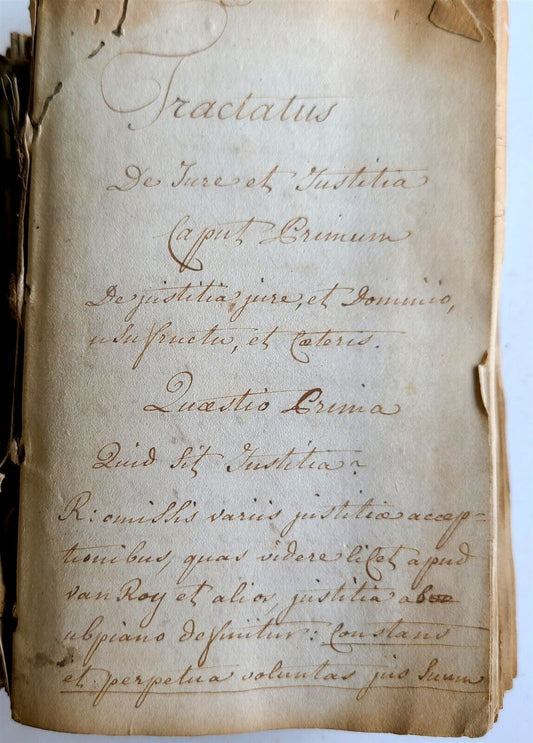 Tractatus
De Jure et Justitia
Caput Primum
De justitia jure, et Dominio,
usufructu, et Cæteris.
Quæstio Prima
Quid Sit Justitia?
R: omissis variis justitiæ accep=
tionibus, quas videre licet apud
van Roy et alios, justitia ab
ulpiano definitur: Constans
et perpetua voluntas jus Suum